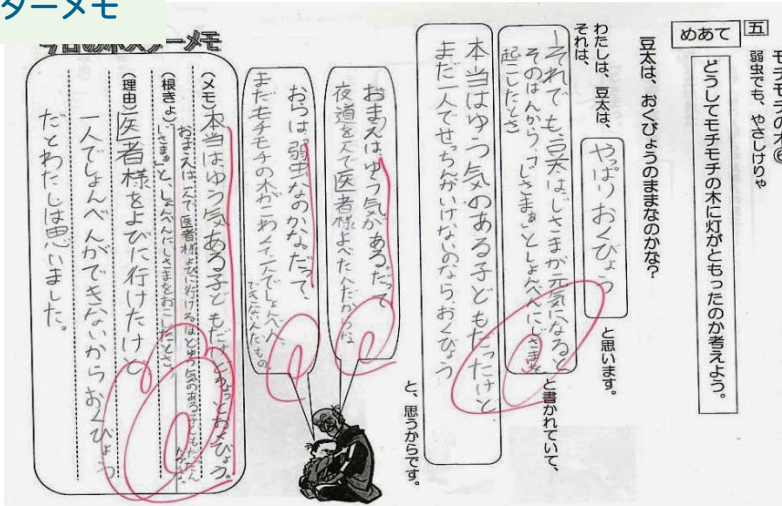 ターメモ
五
モチモチの木⑥
弱虫でも、やさしけりゃ
めあて
どうしてモチモチの木に灯がともったのか考えよう。
豆太は、おくびょうのままなのかな？
わたしは、豆太は、
やっぱりおくびょう
と思います。
それは、
それでも豆太は、じさまが元気になると
そのばんから、「じさまぁ」としょんべんにじさまを
起こしたとさ
と書かれていて、
本当はゆう気のある子どもだったけど
まだ一人でせっちんがいけないのなら、おくびょう
と、思うからです。
おまえはゆう気がある。だって
夜道を一人で医者様よべたんだからな
おらは弱虫なのかな。だって、
まだモチモチの木がこわくて一人でしょんべん
できないんだもの
今日のポスターメモ
(メモ)本当はゆう気ある子どもだけどちょっとおくびょう。
(根きょ)おまえは一人で医者様よびに行けるほどゆう気のある子どもだったん
だからな。
じさまぁ」と、しょんべんにじさまをおこしたとさ。
(理由)医者様をよびに行けたけど
一人でしょんべんができないからおくびょう
だとわたしは思いました。